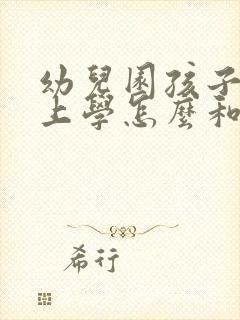 幼兒園孩子
上學怎麼和
希行